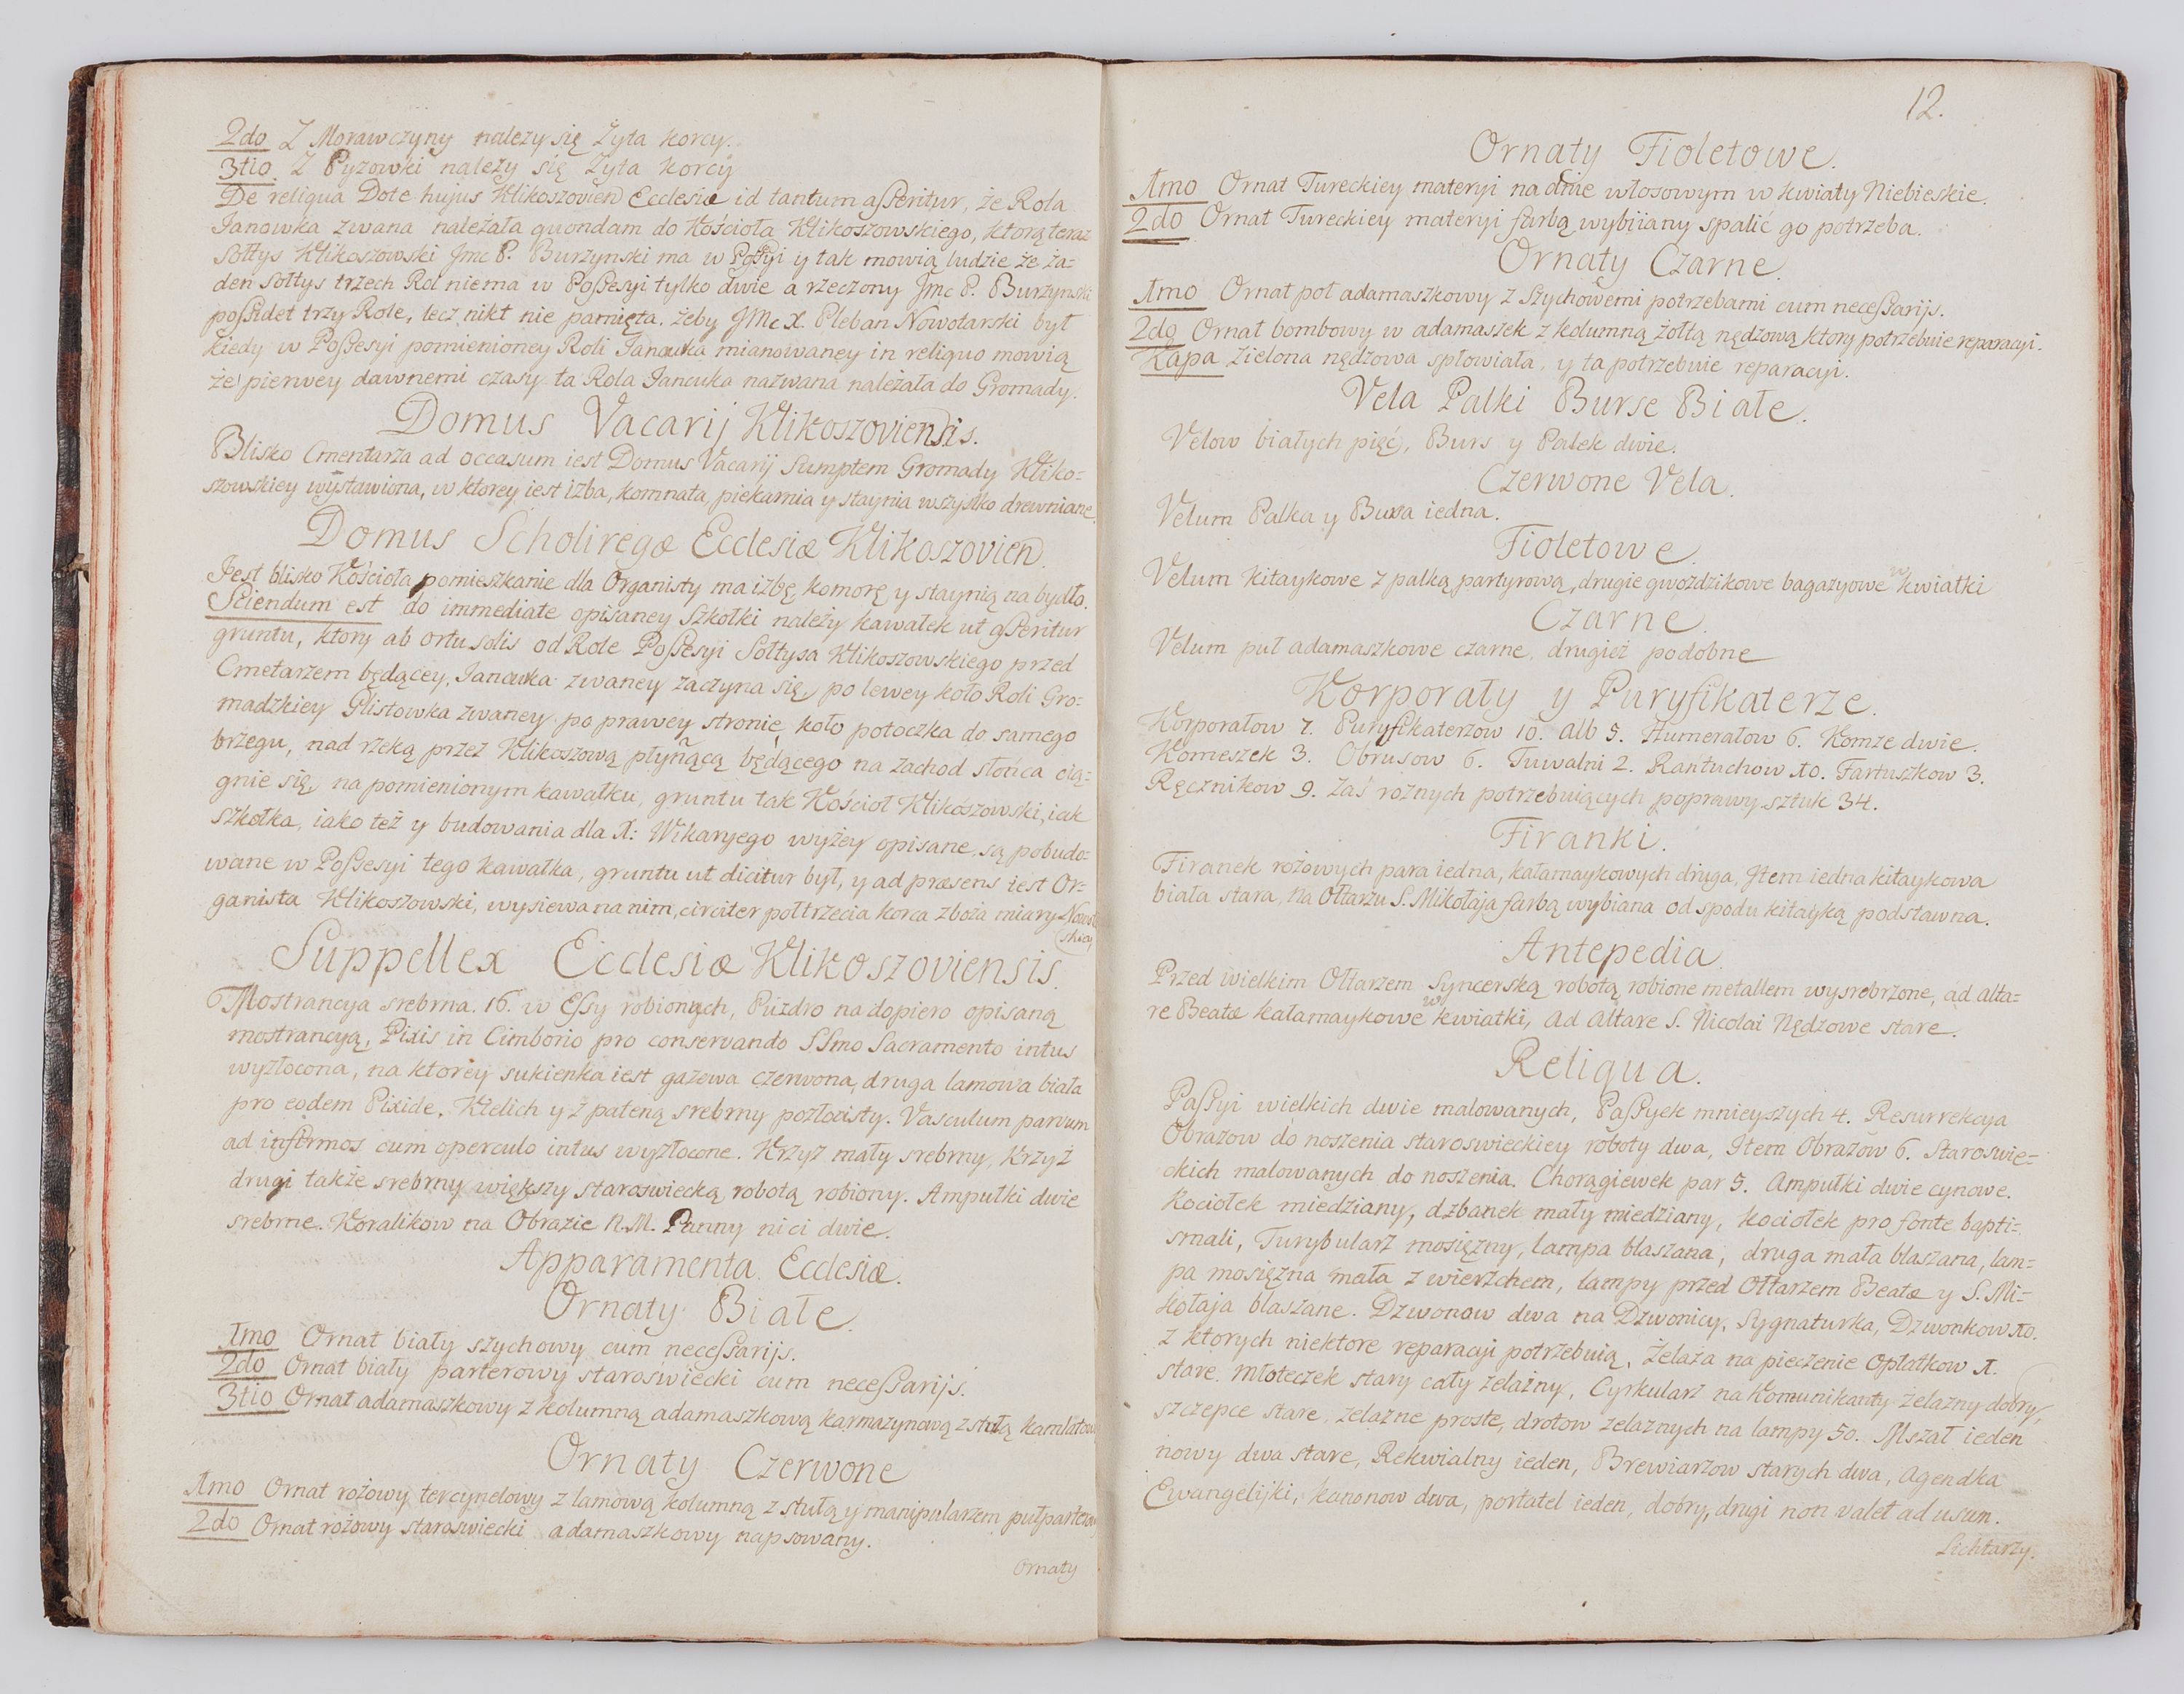 2do Z Morawczyny należy się Żyta korcy.
3tio. Z Pyzowki należy się Żyta korcy
De reliqua Dote hujus Klikoszovien Ecclesiæ id tantum asseritur, że Rola
Janowka zwana należała quondam do Kościoła Klikoszowskiego, ktorą teraz
Sołtys Klikoszowski Jmc P. Burzynski ma w Possyi y tak mowią ludzie że ża=
den Sołtys trzech Rol niema w Possesyi tylko dwie a rzeczony Jmc P. Burzynski
possidet trzy Role, lecz nikt nie pamięta, żeby JMc X. Pleban Nowotarski był
kiedy w Possesyi pomienioney Roli Janowka mianowaney in reliquo mowią
że pierwey dawnemi czasy ta Rola Jancuka nazwana należała do Gromady.
Domus Vacarij Klikoszoviensis.
Blisko Cmentarza ad occasum iest Domus Vacarij Sumptem Gromady Kliko=
szowskiey wystawiona, w ktorey iest izba, komnata, piekarnia y staynia wszystko drewniane.
Domus Scholiregæ Ecclesiæ Klikoszovien.
Jest blisko Kościoła pomieszkanie dla Organisty ma izbę, komorę, y staynią na bydło.
Sciendum est do immediate opisaney Szkołki należy kawałek ut asseritur
gruntu, ktory ab ortu solis od Role Possesyi Sołtysa Klikoszowskiego przed
Cmetarzem będącey, Janowka zwaney zaczyna się, po lewey koło Roli Gro=
madzkiey Glistowka zwaney po prawey stronie, koło potoczka do samego
brzegu, nad rzeką przez Klikoszową płynącą będącego na zachod słońca cią=
gnie się, na pomienionym kawałku, gruntu tak Kościoł Klikoszowski, iak
szkołka, iako też y budowania dla X: Wikaryego wyżey opisane, są pobudo=
wane w Possesyi tego kawałka, gruntu ut dicitur był, y ad præsens iest Or=
ganista Klikoszowski, wysiewa na nim, circiter połtrzecia korca zboża miary Nowot
skiey
Suppellex Ecclesiæ Klikoszoviensis.
Mostrancya srebrna. 16. w Essy robionych, Puzdro na dopiero opisaną
mostrancyą, Pixis in Cimborio pro conservando SSmo Sacramento intus
wyzłocona, na ktorey sukienka iest gazewa czerwona, druga lamowa biała
pro eodem Pixide. Kielich y z pateną srebrny pozłocisty. Vasculum parvum
ad infirmos cum operculo intus wyzłocone. Krzyż mały srebrny, Krzyż
drugi także srebrny większy staroswiecką robotą robiony. Ampułki dwie
srebrne. Koralikow na Obrazie N.M. Panny nici dwie.
Apparamenta Ecclesiæ.
Ornaty Białe.
1mo Ornat biały szychowy cum necessarijs.
2do Ornat biały parterowy staroświecki cum necessarijs.
3tio Ornat adamaszkowy z kolumną adamaszkową karmazynową z stułą kamlatow
Ornaty Czerwone
1mo Ornat rożowy tercynelowy z lamową kolumną z stułą y manipularzem pułparterow
2do Ornat rożowy staroswiecki adamaszkowy napsowany.
Ornaty
12.
Ornaty Fioletowe.
1mo Ornat Tureckiey materyi na dnie włosowym w kwiaty Niebieskie.
2do Ornat Tureckiey materyi farbą wybiiany spalić go potrzeba.
Ornaty Czarne.
1mo Ornat poł adamaszkowy z szychowemi potrzebami cum necessarijs.
2do Ornat bombowy w adamaszek z kolumną żołtą nędzową ktory potrzebuie reparacyi.
Kapa zielona nędzowa spłowiała, y ta potrzebuie reparacyi.
Vela Palki Burse Białe.
Velow białych pięć, Burs y Palek dwie.
Czerwone Vela.
Velum Palka y Bursa iedna.
Fioletowe.
Velum kitaykowe z palką partyrową, drugie gwozdzikowe bagazyowe w kwiatki
Czarne.
Velum puł adamaszkowe czarne, drugież podobne
Korporały y Puryfikaterze.
Korporałow 7. Puryfikaterzow 10. Alb 5. Humerałow 6. Komze dwie.
Komeszek 3. Obrusow 6. Tuwalni 2. Rantuchow 10. Fartuszkow 3.
Ręcznikow 9. Zaś rożnych potrzebuiących poprawy sztuk 34.
Firanki.
Firanek rożowych para iedna, kałamaykowych druga, Jtem iedna kitaykowa
biała stara, na Ołtarzu S. Mikołaja farbą wybiana od spodu kitayką podstawna.
Antepedia.
Przed wielkim Ołtarzem Syncerską robotą robione metallem wysrebrzone, ad Alta=
re Beatæ kałamaykowe w kwiatki, Ad Altare S. Nicolai Nędzowe stare.
Reliqua.
Passyi wielkich dwie malowanych, Passyek mnieyszych 4. Resurrekcya
Obrazow do noszenia staroswieckiey roboty dwa, Jtem Obrazow 6. Staroswie=
ckich malowanych do noszenia. Chorągiewek par 5. Ampułki dwie cynowe.
Kociołek miedziany, dzbanek mały miedziany, kociołek pro fonte bapti=
smali, Turybularz mosiężny, lampa blaszana, druga mała blaszana, lam=
pa mosiężna mała z wierzchem, lampy przed Ołtarzem Beatæ y S. Mi=
kołaja blaszane. Dzwonow dwa na Dzwonicy, Sygnaturka, Dzwonkow 10.
z ktorych niektore reparacyi potrzebuią, Żelaza na pieczenie Opłatkow 1.
stare. Młoteczek stary cały żelazny, Cyrkularz na Komunikanty żelazny dobry,
szczepce stare, żelazne proste, drotow żelaznych na lampy 50. Mszał ieden
nowy dwa stare, Rekwialny ieden, Brewiarzow starych dwa, Agendka
Ewangelijki, kanonow dwa, portatel ieden, dobry, drugi non valet ad usum.
Lichtarzy.